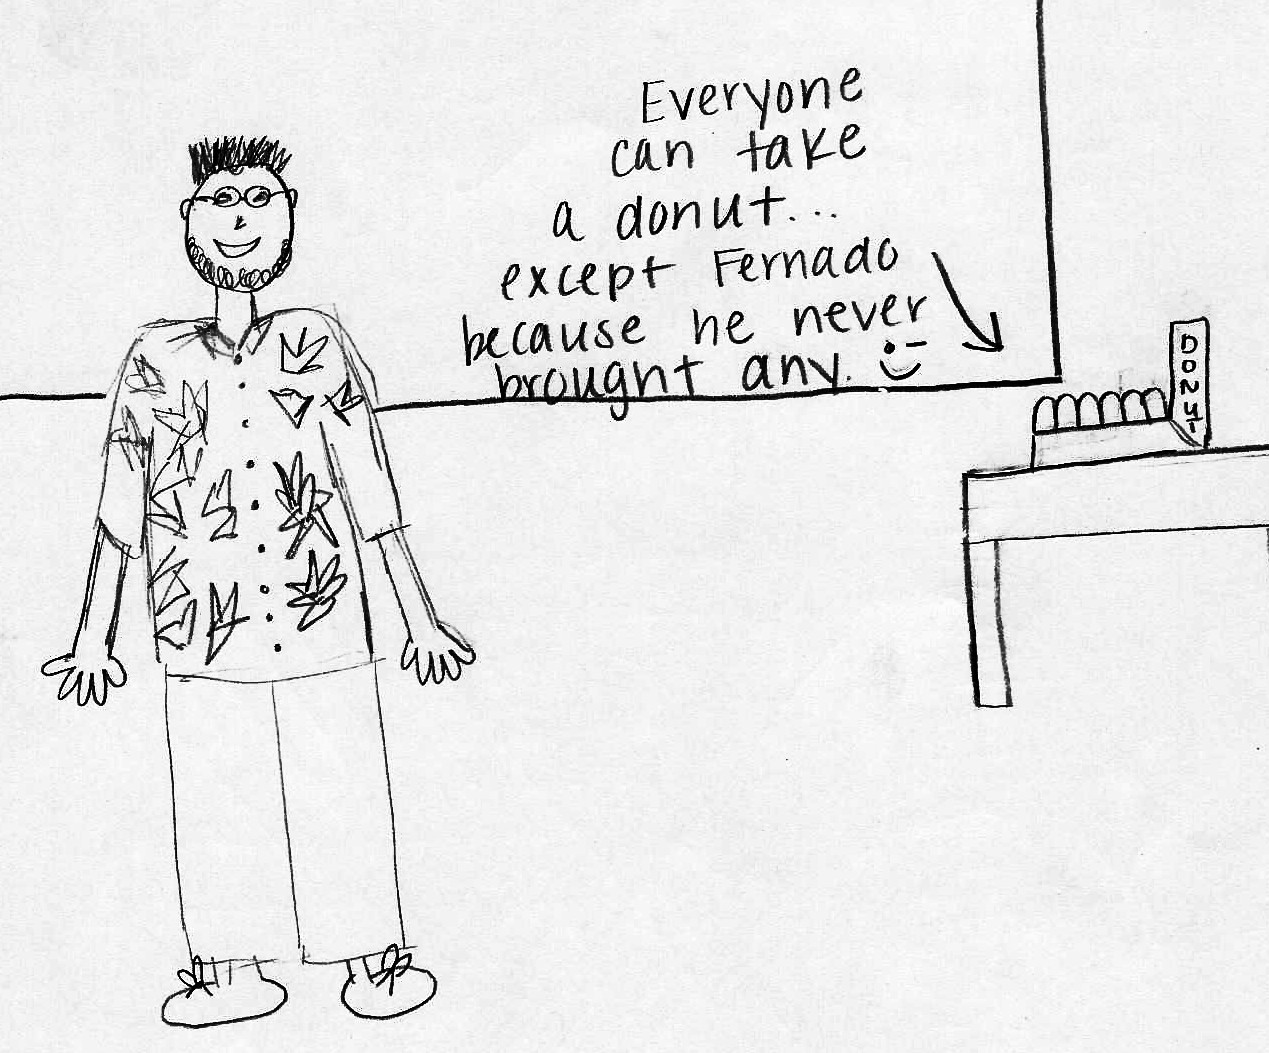 Everyone
can take
a donut...
except Fernado
because he never
brought any.
DONUT